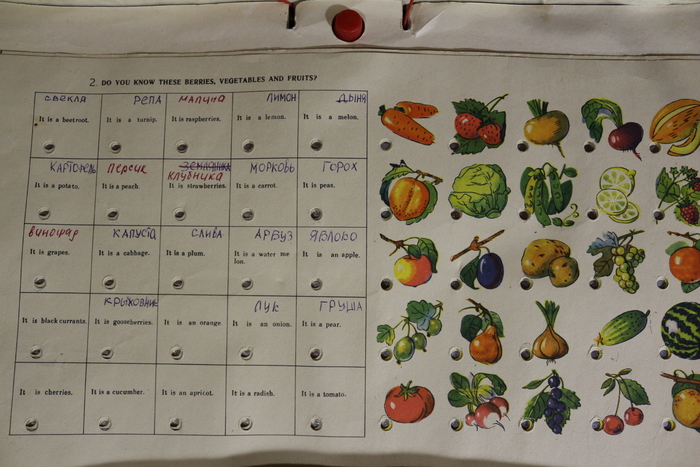 2. DO YOU KNOW THESE BERRIES, VEGETABLES AND FRUITS?
СВЕКЛА РЕПА МАЛИНА ЛИМОН ДЫНЯ
It is a beetroot. It is a turnip. It is raspberries. It is a lemon. It is a melon.
КАРТОФЕЛЬ ПЕРСИК ЗЕМЛЯНИКА МОРКОВЬ ГОРОХ
КЛУБНИКА
It is a potato. It is a peach. It is strawberries. It is a carrot. It is peas.
ВИНОГРАД КАПУСТА СЛИВА АРБУЗ ЯБЛОКО
It is grapes. It is a cabbage. It is a plum. It is a water me It is an apple.
lon.
КРЫЖОВНИК ЛУК ГРУША
It is black currants. It is gooseberries. It is an orange. It is an onion. It is a pear.
It is cherries. It is a cucumber. It is an apricot. It is a radish. It is a tomato.